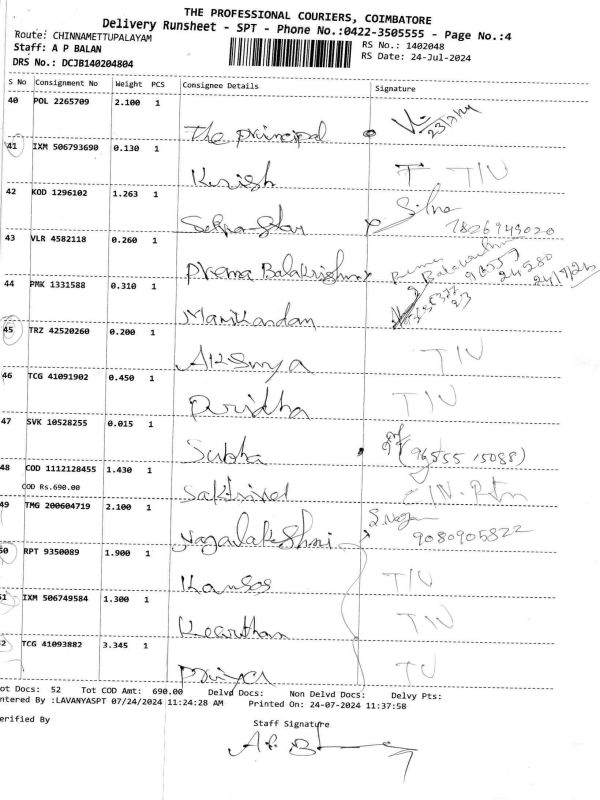 THE PROFESSIONAL COURIERS, COIMBATORE
Delivery Runsheet - SPT - Phone No.:0422-3505555 - Page No.:4
Route: CHINNAMETTUPALAYAM RS No.: 1402048
Staff: A P BALAN RS Date: 24-Jul-2024
DRS No.: DCJB140204804
S No Consignment No Weight PCS Consignee Details Signature
40 POL 2265709 2.100 1
The principal 23/7/24
41 IXM 506793690 0.130 1
T TIV
42 KOD 1296102 1.263 1
7826949020
43 VLR 4582118 0.260 1
Prema Balakrishnan
44 PMK 1331588 0.310 1
Manikandan
45 TRZ 42520260 0.200 1
TIV
46 TCG 41091902 0.450 1
TIV
47 SVK 10528255 0.015 1
Subha (96555 15088)
48 COD 1112128455 1.430 1
COD Rs.690.00
49 TMG 200604719 2.100 1
Nagalakshmi 9080905822
50 RPT 9350089 1.900 1
TIV
51 IXM 506749584 1.300 1
Kearthan TIV
52 TCG 41093882 3.345 1
Priya
ot Docs: 52 Tot COD Amt: 690.00 Delvd Docs: Non Delvd Docs: Delvy Pts:
ntered By :LAVANYASPT 07/24/2024 11:24:28 AM Printed On: 24-07-2024 11:37:58
erified By
Staff Signature